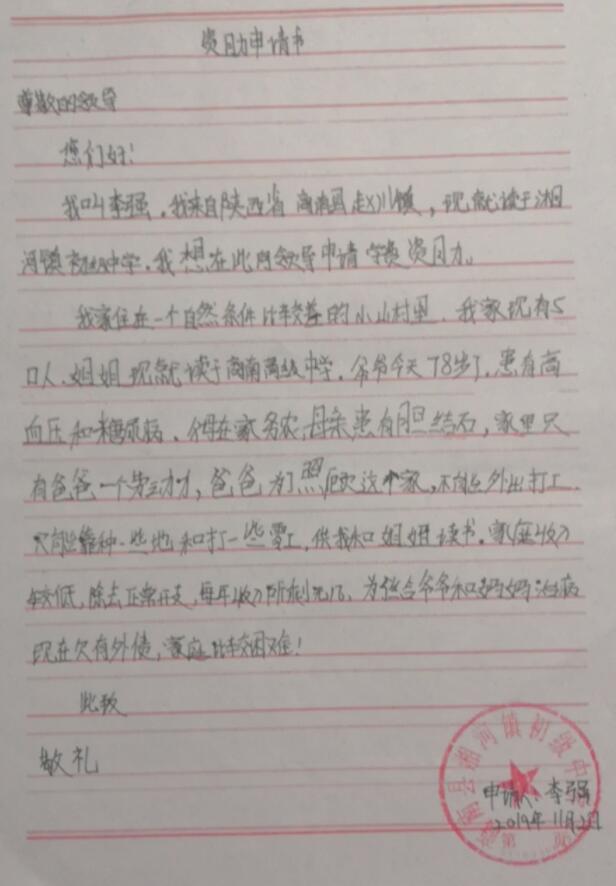 资助申请书
尊敬的领导
您们好!
我叫李强,我来自陕西省商南县赵川镇,现就读于湘
河镇初级中学,我想在此向领导申请学费资助。
我家住在一个自然条件比较差的小山村里,我家现有5
口人,姐姐现就读于商南高级中学,爷爷今天78岁了,患有高
血压和糖尿病,父母在家务农,母亲患有胆结石,家里只
有爸爸一个劳动力,爸爸为了照顾这个家,不能外出打工
只能靠种一些地和打一些零工,供我和姐姐读书。家庭收入
较低,除去正常开支,每年收入所剩无几,为给爷爷和妈妈治病
现在欠有外债,家庭比较困难!
此致
敬礼
商南县湘河镇初级中学
申请人:李强
2019年11月2日
第 页